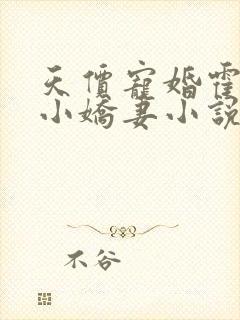 天價寵婚霍
小嬌妻小說
不谷